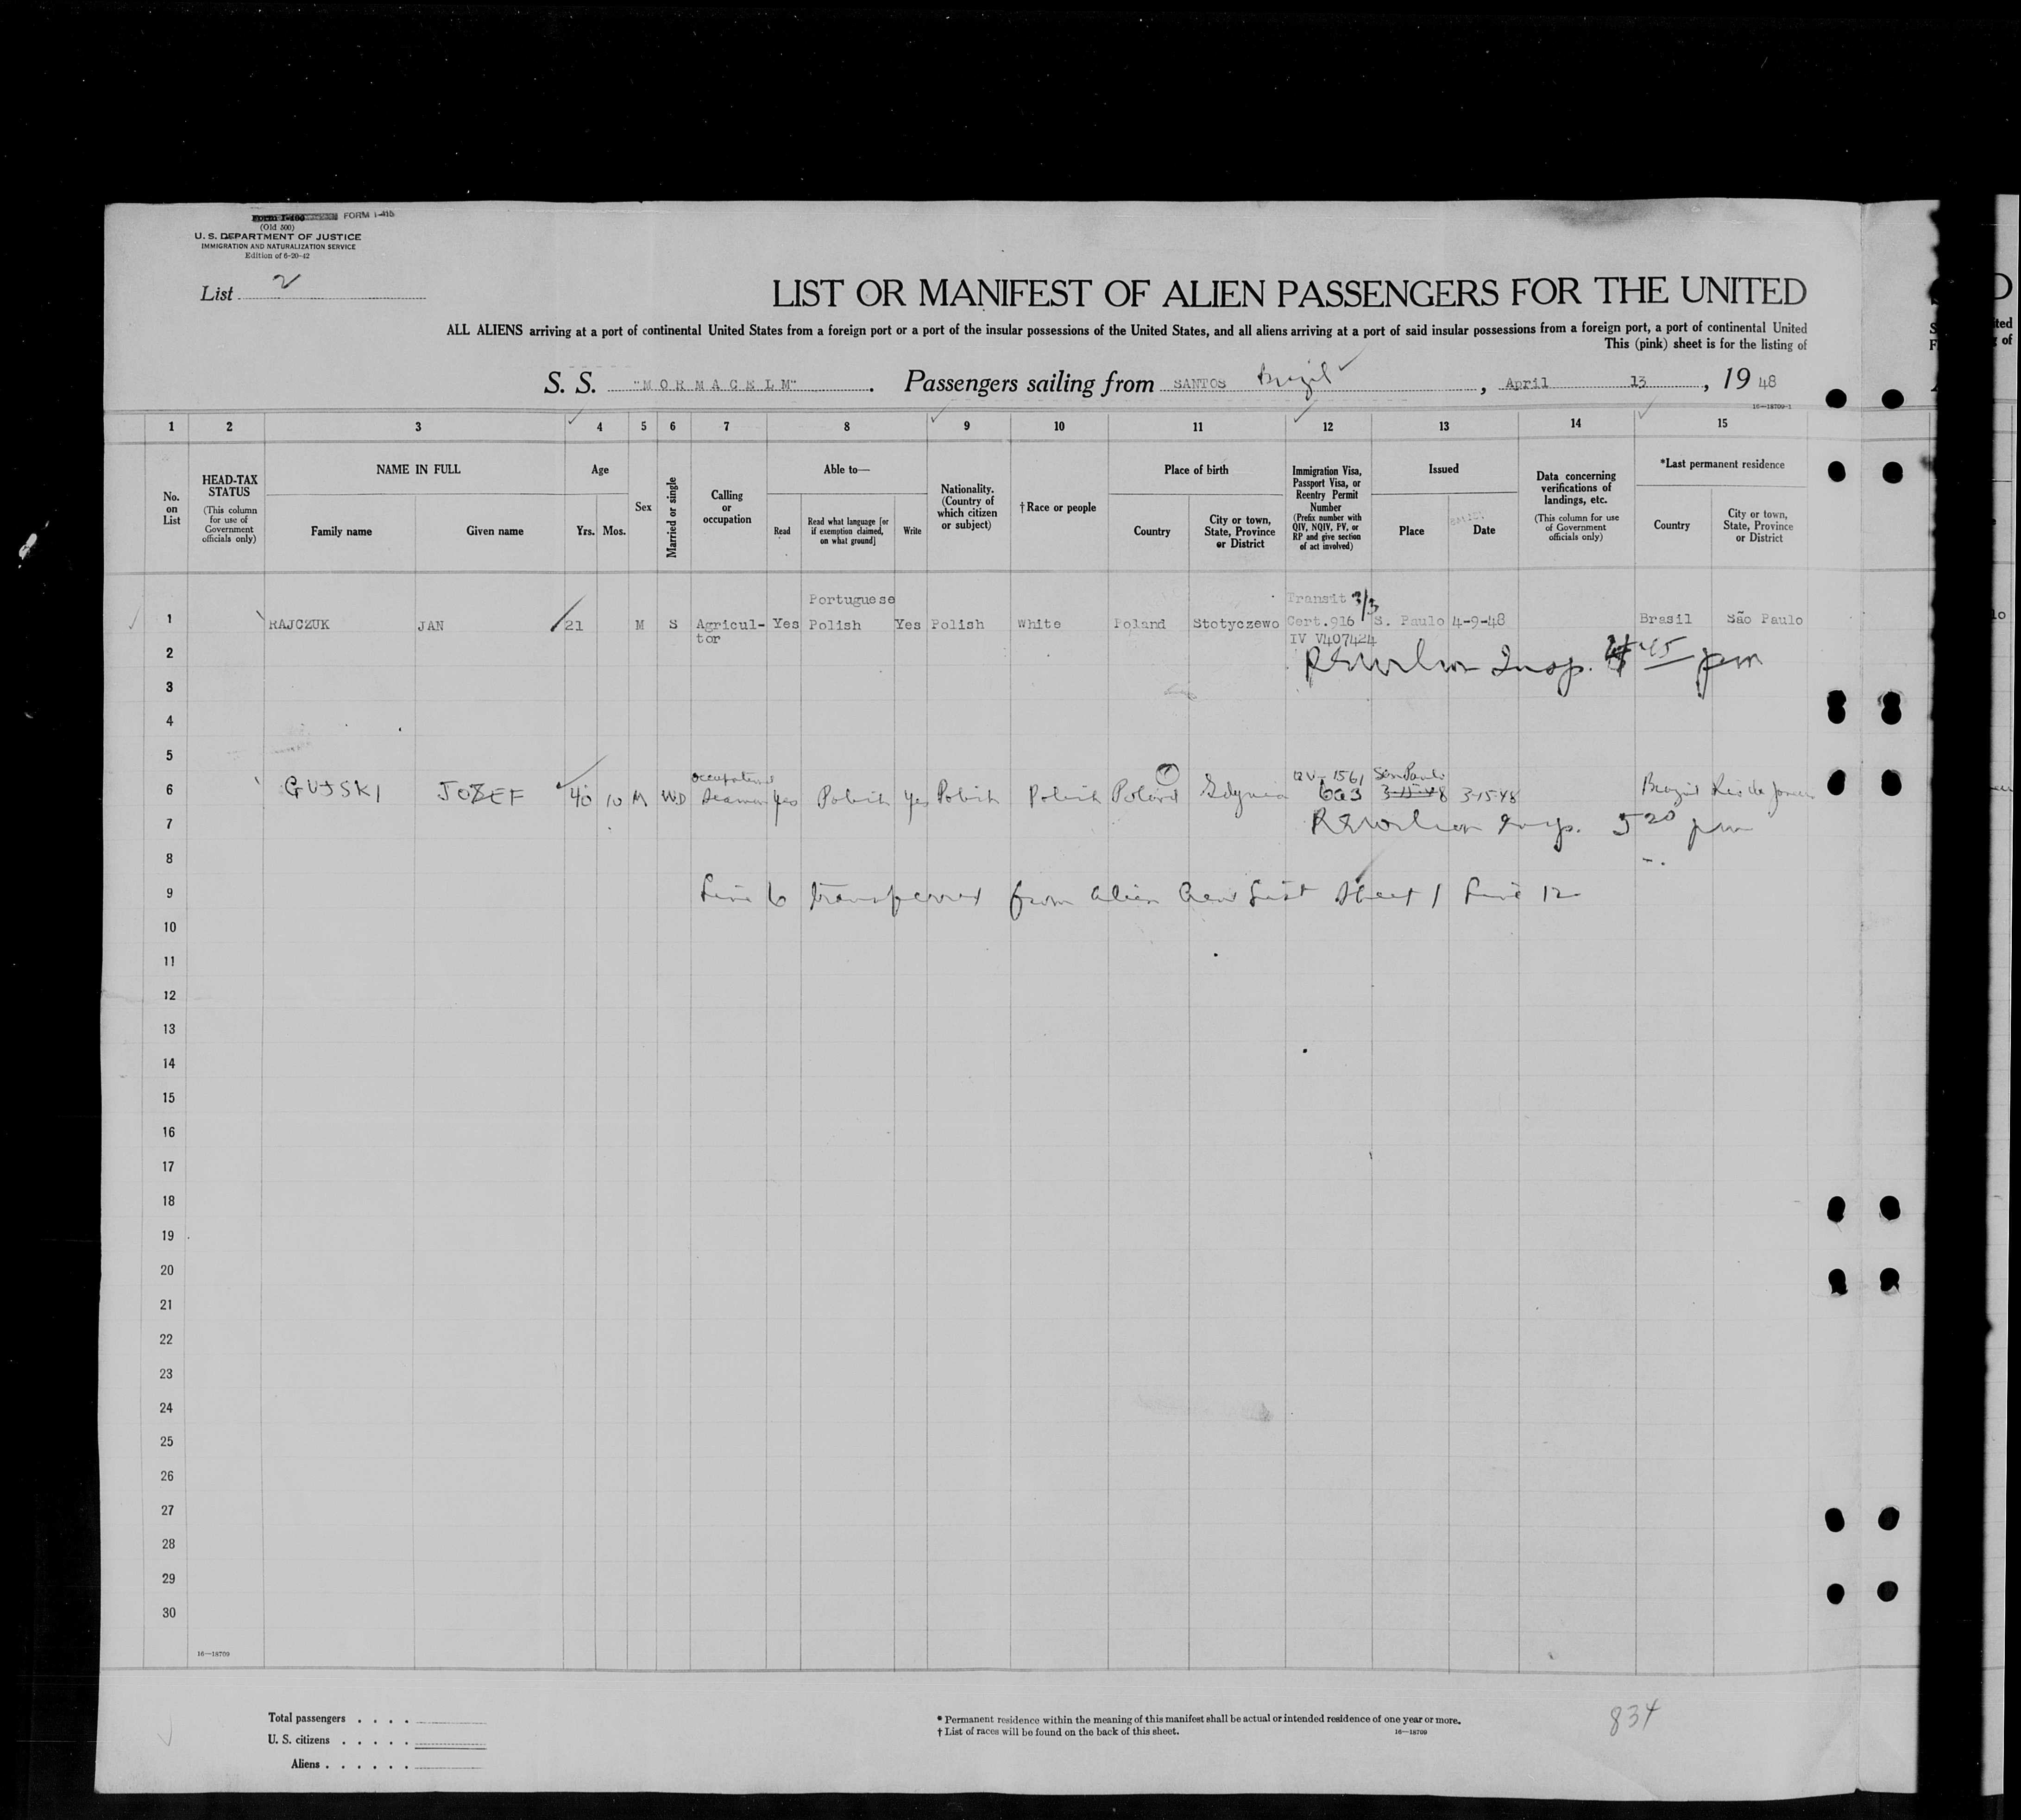 FORM I-415
(Old 500)
U. S. DEPARTMENT OF JUSTICE
IMMIGRATION AND NATURALIZATION SERVICE
Edition of 6-20-42
List 2
LIST OR MANIFEST OF ALIEN PASSENGERS FOR THE UNITED
ALL ALIENS arriving at a port of continental United States from a foreign port or a port of the insular possessions of the United States, and all aliens arriving at a port of said insular possessions from a foreign port, a port of continental United
This (pink) sheet is for the listing of
S. S. "MORMACELM". Passengers sailing from SANTOS Brazil, April 13, 19 48
16—18709-1
1 2 3 4 5 6 7 8 9 10 11 12 13 14 15
No. on List
HEAD-TAX STATUS (This column for use of Government officials only)
NAME IN FULL
Family name
Given name
Age
Yrs. Mos.
Sex
Married or single
Calling or occupation
Able to—
Read
Read what language [or if exemption claimed, on what ground]
Write
Nationality. (Country of which citizen or subject)
†Race or people
Place of birth
Country
City or town, State, Province or District
Immigration Visa, Passport Visa, or Reentry Permit Number (Prefix number with QIV, NQIV, PV, or RP and give section of act involved)
Issued
Place
Date
Data concerning verifications of landings, etc. (This column for use of Government officials only)
*Last permanent residence
Country
City or town, State, Province or District
Portuguese Transit 3/3
1 RAJCZUK JAN 21 M S Agricul- Yes Polish Yes Polish White Poland Stotyczewo Cert.916 S. Paulo 4-9-48 Brasil São Paulo
tor IV V407424
2 Insp. 45 pm
3
4
5
occupation QV-1561 San Paulo
6 GUJSKI JOZEF 40 10 M WD Seaman Yes Polish Yes Polish Polish Poland Gdynia 6a3 3-15-48 3-15-48 Brazil Rio de Janeiro
7 Insp. 5 20 pm
8
9 Line 6 transferred from alien Crew List Sheet 1 Line 12
10
11
12
13
14
15
16
17
18
19
20
21
22
23
24
25
26
27
28
29
30
16—18709
Total passengers . . . .
U. S. citizens . . . . .
Aliens . . . . . .
* Permanent residence within the meaning of this manifest shall be actual or intended residence of one year or more.
† List of races will be found on the back of this sheet. 16—18709
834